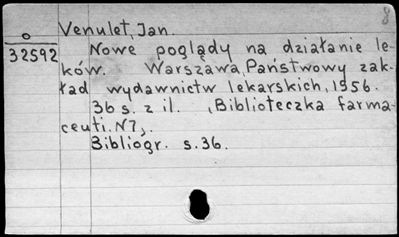 8
Venulet, Jan.
o
32592
Nowe poglądy na działanie le-
ków. Warszawa, Państwowy zak-
ład wydawnictw lekarskich, 1956.
36 s. z il. (Biblioteczka farma-
ceuti. N7).
Bibliogr. s. 36.